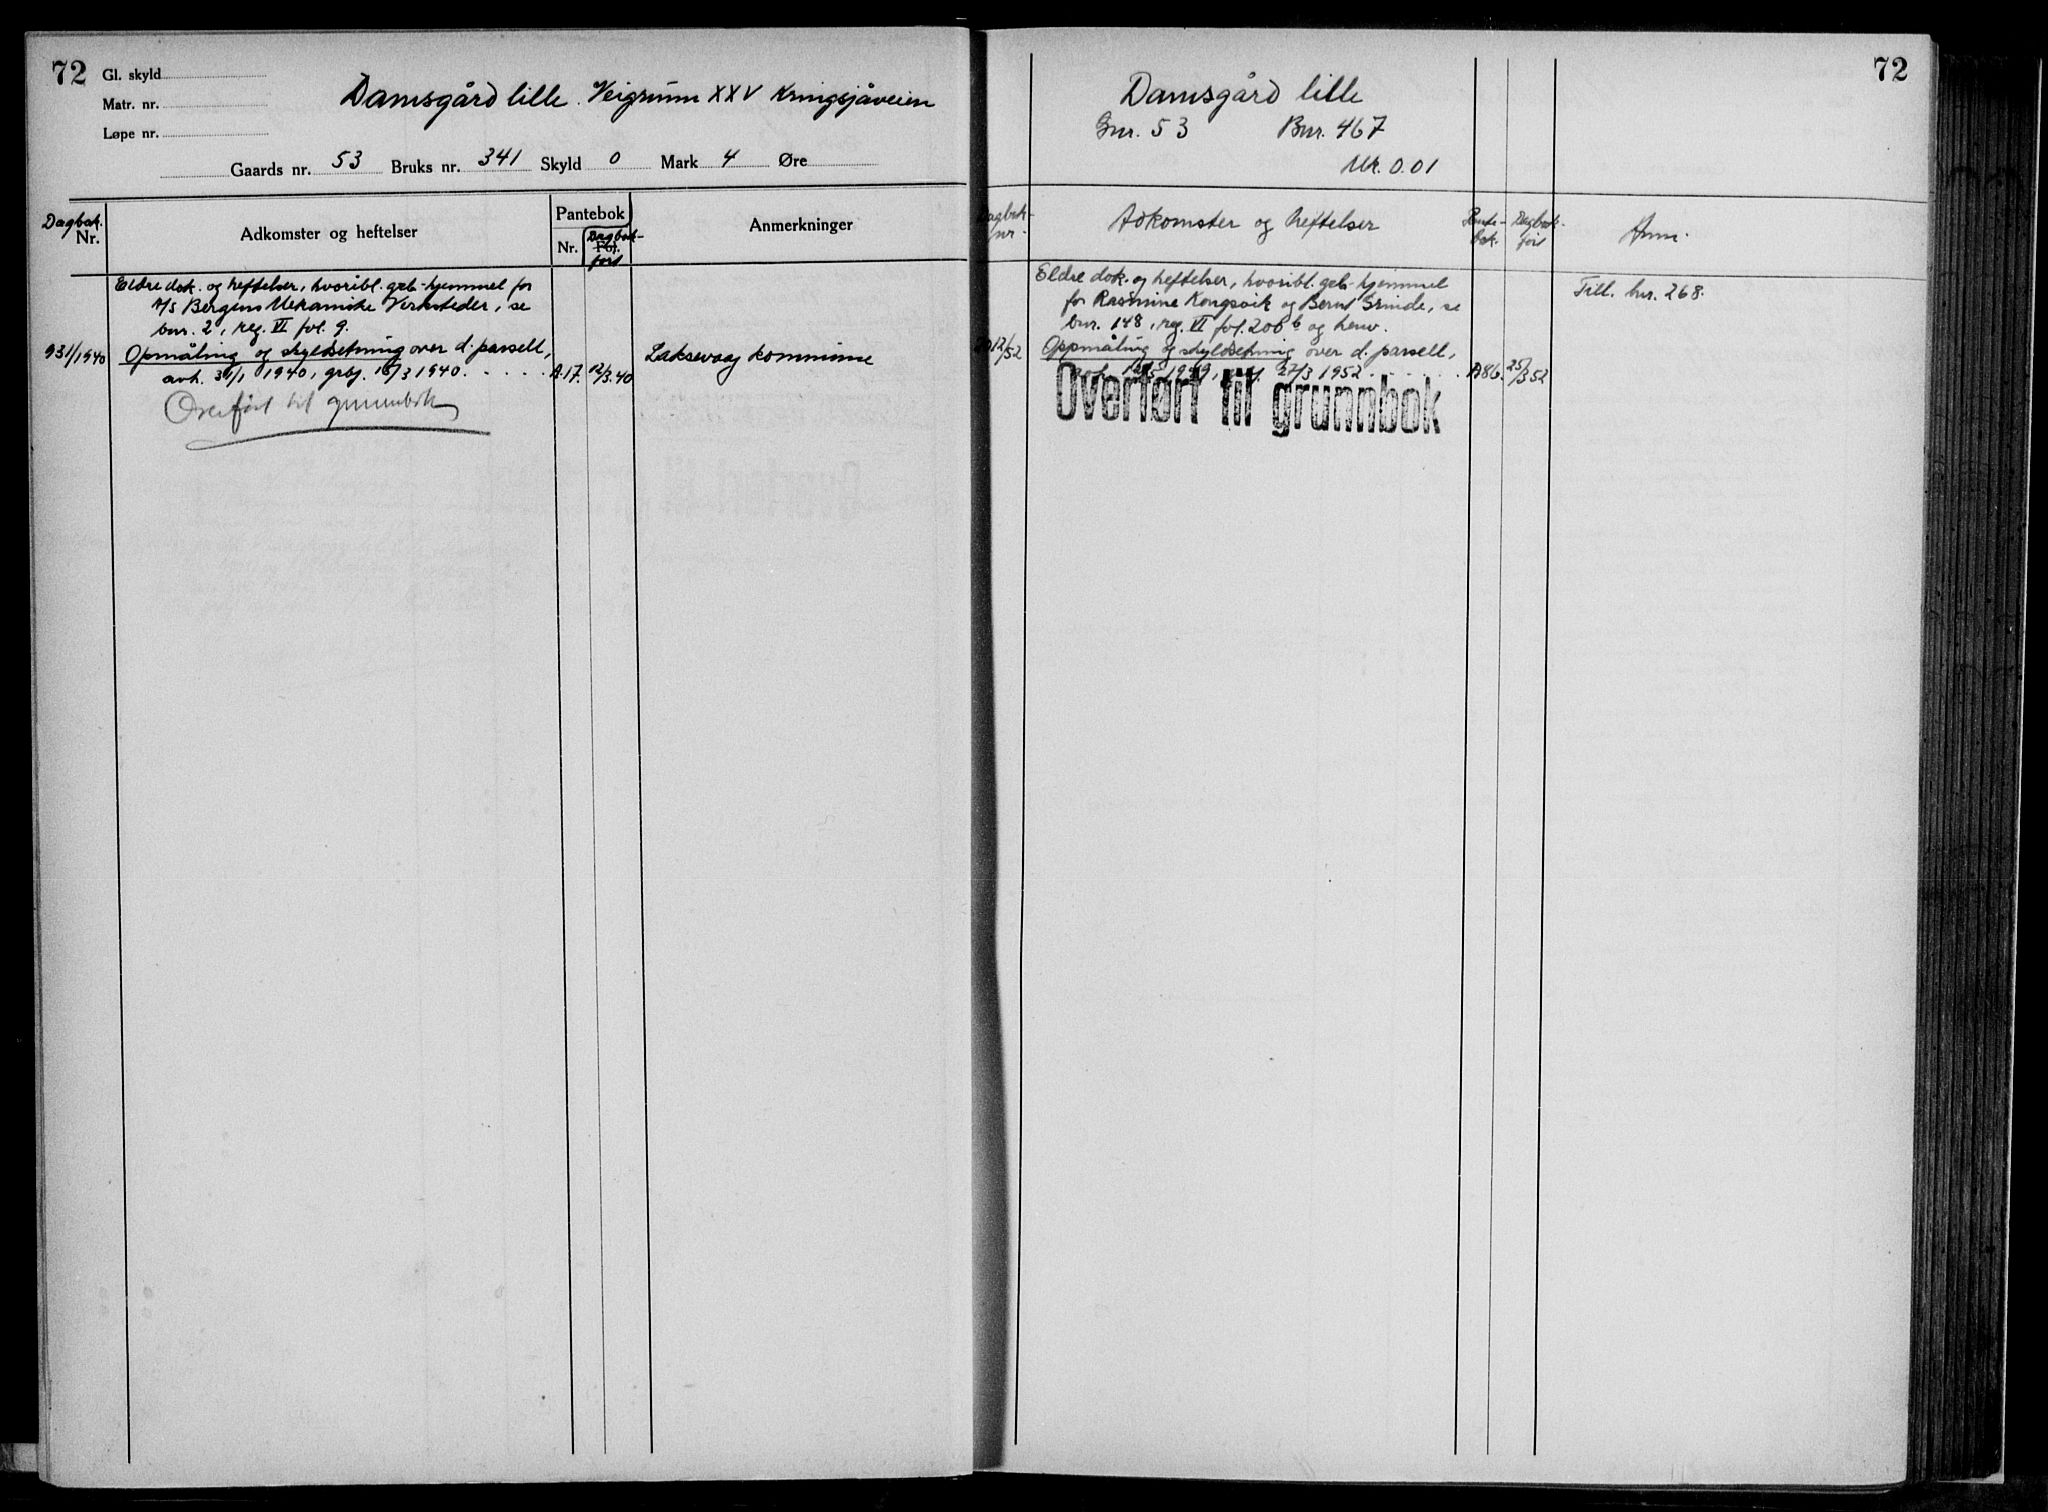 72
Gl. skyld
Matr. nr.
Løpe nr.
Damsgård lille. Veigrunn XXV Kringsjåveien
Gaards nr. 53 Bruks nr. 341 Skyld 0 Mark 4 Øre
Dagbok. Nr.
Adkomster og heftelser
Pantebok
Nr. Fol.
Dagbok-ført
Anmerkninger
Eldre dok. og heftelser, hvoribl. grb-hjemmel for
A/S Bergens Mekaniske Verksteder, se
bnr. 2, reg. VI fol. 9.
931/1940 Opmåling og skyldsetning over d. parsell,
avh. 31/1 1940, grbj. 16/3 1940. A.17. 12/3.40 Laksevaag kommune
Overført til grunnbok
72
Damsgård lille
Gnr. 53 Bnr. 467
Mk. 0.01
Dagbok-nr. Adkomster og heftelser Pante-bok. Dagbok-ført Anm.
Eldre dok. og heftelser, hvoribl. grb-hjemmel Till. bnr. 268.
for Rasmine Kongsvik og Bernt Grinde, se
bnr. 148, reg. VI fol. 206 b og henv.
12/52 Oppmåling og skyldsetning over d. parsell,
27/3 1952 A86. 25/3 52
Overført til grunnbok